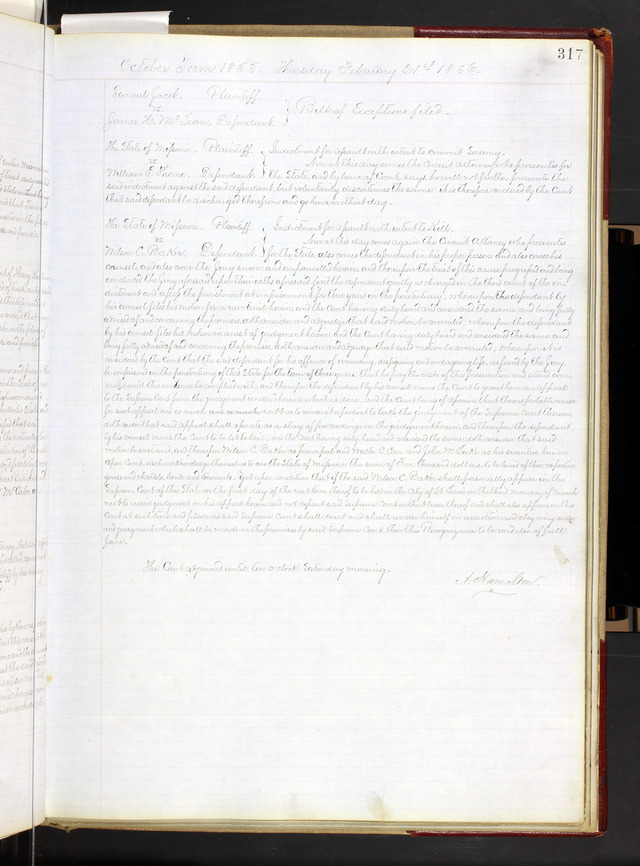 317
October Term 1855. Thursday February 21st 1856.
Samuel Jacob. Plaintiff.
vs
James H. McLean, Defendant.
Bill of Exceptions filed.
The State of Missouri, Plaintiff. Indictment for assault with intent to commit
vs Now at this day comes the Circuit Attorney who prosecutes for
William E. Defendant. the State, and by leave of Court, says he will not further prosecute the
said indictment against the said defendant, but voluntarily discontinues the same. it is therefore ordered by the Court
that said defendant be discharged therefrom and go hence without day.
The State of Missouri, Plaintiff. Indictment for assault with intent to kill.
vs Now at this day comes again the Circuit Attorney who prosecutes
Wilson C. Baker, Defendant. for the State, also comes the defendant in his proper person and also comes his
counsel, and also come the Jury sworn and empannelled herein, and thereupon the trial of this cause progressed and being
concluded the Jury aforesaid upon their oaths aforesaid find the defendant guilty as charged in the third count of the in-
dictment and assess the punishment at imprisonment for three years in the penitentiary, whereupon the defendant by
his counsel files his motion for a new trial herein, and the Court having duly heard and considered the same and being fully
advised of and concerning the premises doth consider and adjudge that said motion be overruled; whereupon the defendant
by his counsel files his motion in arrest of judgment herein, and the Court having duly heard and considered the same and
being fully advised of and concerning the premises, doth consider and adjudge that said motion be overruled; whereupon it is
considered by the Court that the said defendant for his offence of wounding, disfiguring and endangering life as found by the Jury
be imprisoned in the penitentiary of this State for the term of three years, that he pay the costs of this prosecution and stand com-
mitted until this sentence be complied with, and thereupon the defendant by his counsel moves the Court to grant him an appeal
to the Supreme Court from the judgment rendered herein which is done; and the Court being of opinion that there is probable cause
for such appeal and so much doubt as to render it expedient to take the judgment of the Supreme Court thereon
doth order that said appeal shall operate as a stay of proceedings on the judgment herein, and thereupon the defendant
by his counsel moves the Court to be let to bail, and the Court having duly heard and considered the same doth consider that said
motion be sustained, and thereupon Wilson C. Baker as principal and Walter C. Carr and John W. as his securities, here in
open Court, each acknowledge themselves to owe the State of Missouri the sum of dollars, to be levied of their respective
goods and chattels, lands and tenements. Yet upon condition that if the said Wilson C. Baker shall personally appear in the
Supreme Court of this State on the first day of the next term thereof to be held in the City of St. Louis on the third Monday of March
next to receive judgment on his appeal herein and not depart said Supreme Court without leave thereof and shall also appear in this
Court at such time and place as said Supreme Court shall direct and shall render himself in execution and obey every order
and judgment which shall be made in the premises by said Supreme Court, then this Recognizance to be void else of full
force.
The Court adjourned until ten o'clock Saturday morning.
A. Hamilton.